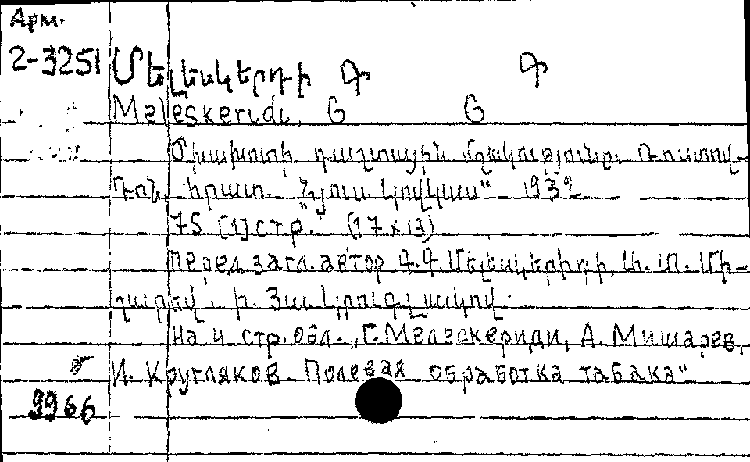 Арм.
2-3251 Մելեսկերդի Գ Գ
Meleskeridi, G G
Ծխախոտի դաշտային մշակությունը. Ռոստով-
Դոն, հրատ. „Նյուս Կովկաս“ 1932
75 [1] стр. (17 x 13)
перед загл. автор Գ. Գ. Մելեսկերիդի, Ա. Մ. Մի-
շարեվ, Ի. Յա. Կրուգլյակով.
На 4 стр. обл. „Г. Мелескериди, А. Мишарев,
И. Кругляков. Полевая обработка табака“
9966